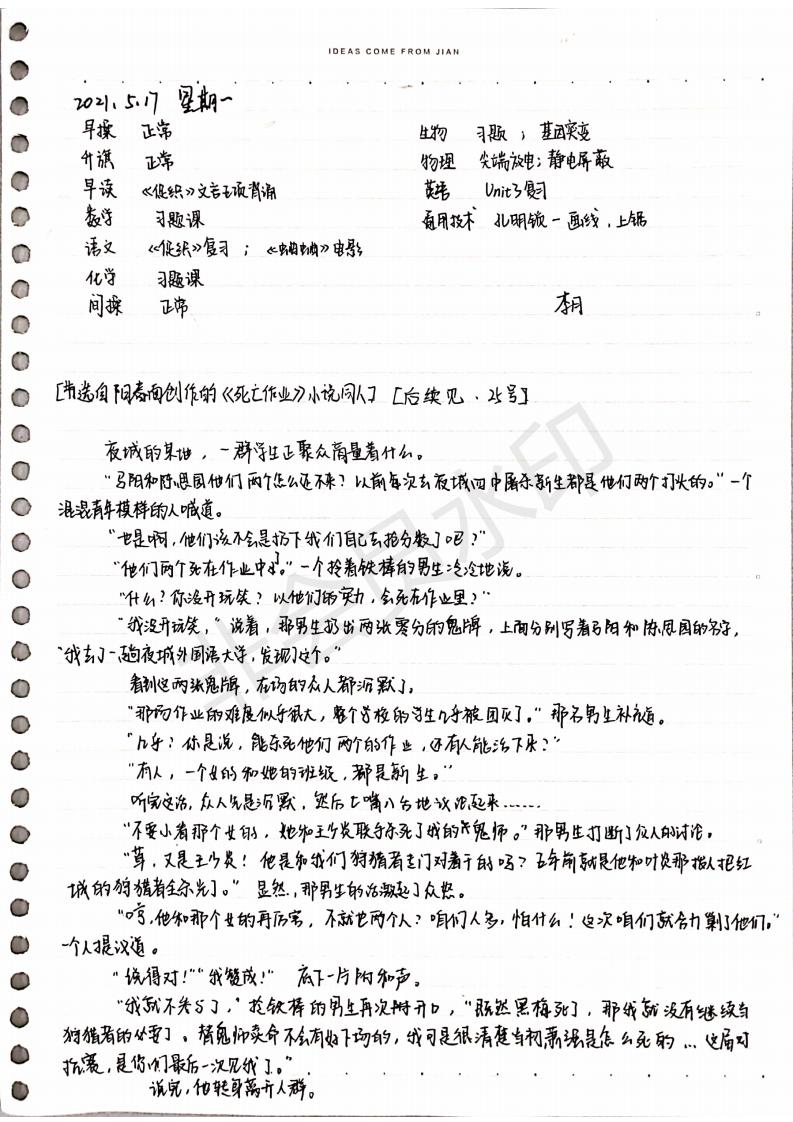 IDEAS COME FROM JIAN
2021.5.17 星期一
早操 正常
升旗 正常
早读 《促织》文言五项背诵
数学 习题课
语文 《促织》复习；《蛐蛐》电影
化学 习题课
间操 正常
生物 习题；基因突变
物理 尖端放电；静电屏蔽
英语 Unit3复习
通用技术 孔明锁一画线，上锯
李月
[节选自阳春面创作的《死亡作业》小说同人] [后续见·25号]
夜城的某地，一群学生正聚众商量着什么。
“马阳和陈恩国他们两个怎么还不来？以前每次去夜城四中屠杀新生都是他们两个打头的。”一个
混混青年模样的人喊道。
“也是啊，他们该不会是扔下我们自己去抢分数了吧？”
“他们两个死在作业中了。”一个拎着铁棒的男生冷冷地说。
“什么？你没开玩笑？以他们的实力，会死在作业里？”
“我没开玩笑，”说着，那男生扔出两张零分的鬼牌，上面分别写着马阳和陈恩国的名字，
“我去了一趟夜城外国语大学，发现了这个。”
看到这两张鬼牌，在场的众人都沉默了。
“那场作业的难度似乎很大，整个学校的学生几乎被团灭了。”那名男生补充道。
“几乎？你是说，能杀死他们两个的作业，还有人能活下来？”
“有人，一个女的和她的班级，都是新生。”
听完这话，众人先是沉默，然后七嘴八舌地议论起来……
“不要小看那个女的，她和王少炎联手杀死了我的鬼师。”那男生打断了众人的讨论。
“草，又是王少炎！他是和我们狩猎者专门对着干的吗？五年前就是他和叶炎那拨人把红
城的狩猎者全杀光了。”显然，那男生的话激起了众怒。
“哼，他和那个女的再厉害，不就也两个人？咱们人多，怕什么！这次咱们就合力剿了他们。”
一个人提议道。
“说得对！”“我赞成！” 底下一片附和声。
“我就不参与了，”抡铁棒的男生再次开口，“既然黑梅死了，那我就没有继续当
狩猎者的必要了。替鬼师卖命不会有好下场的，我可是很清楚当初萧强是怎么死的…这届对
抗赛，是你们最后一次见我了。”
说完，他转身离开人群。
非会员水印